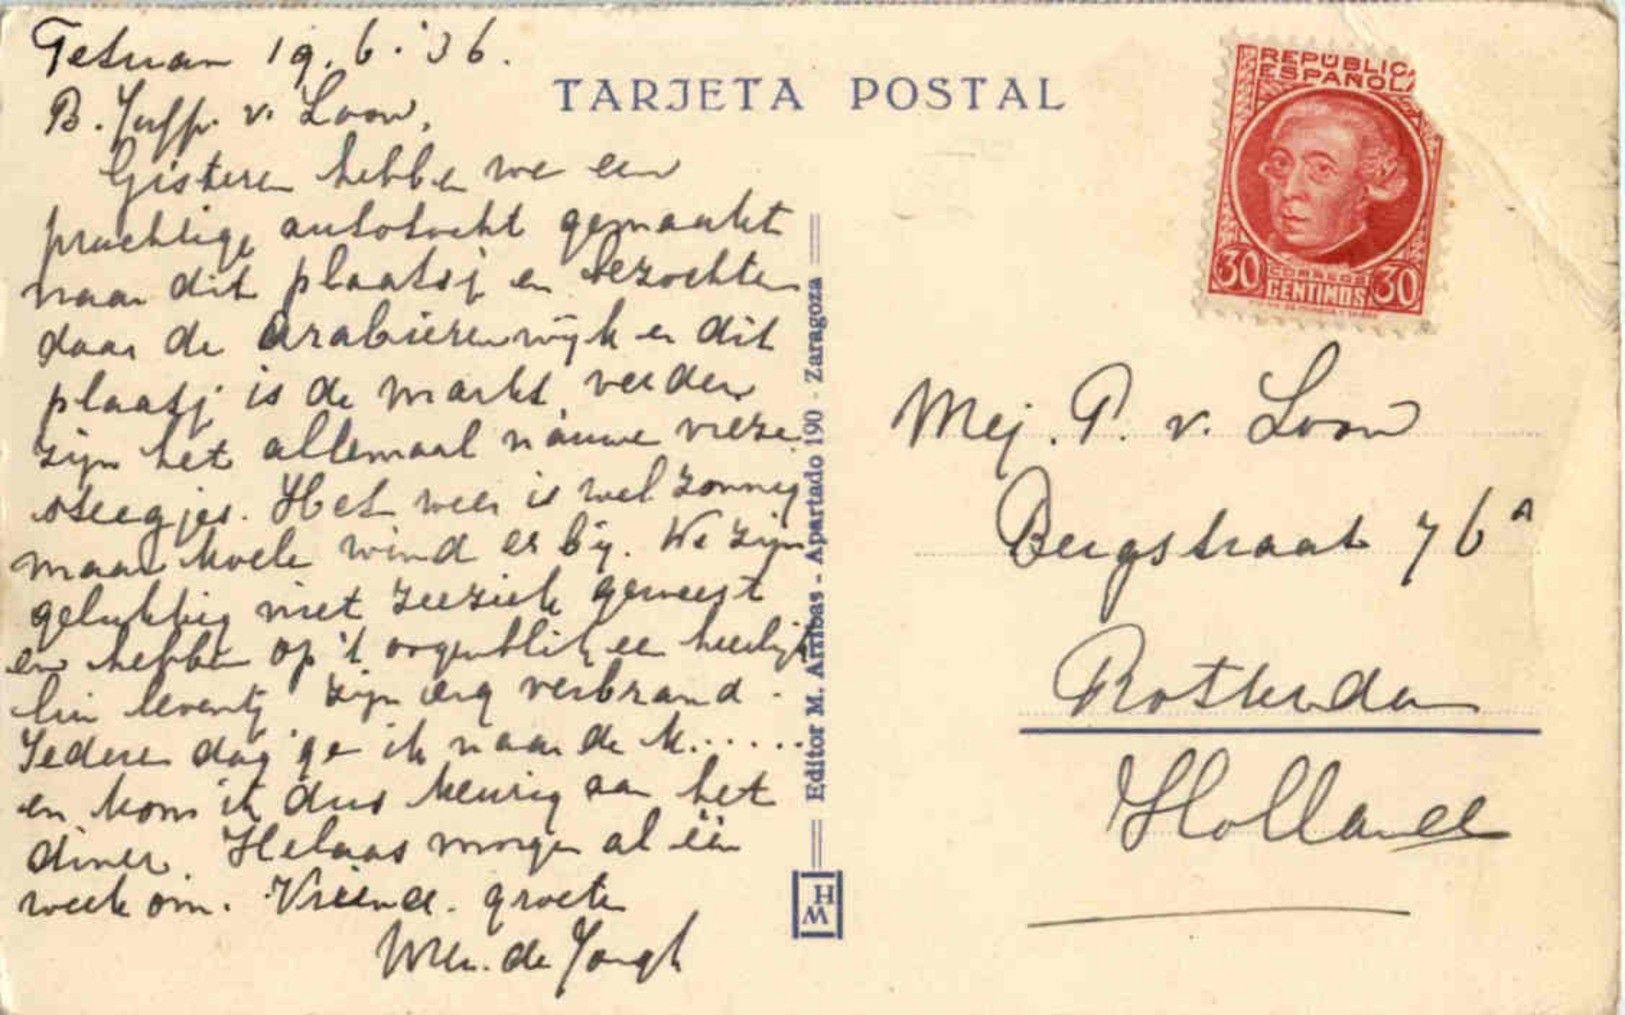 Tetuan 19.6.'36.
B. Juffr. v. Loon,
Gisteren hebben we een
prachtige autotocht gemaakt
naar dit plaatsj en bezochten
daar de Arabierenwijk en dit
plaatsj is de markt, verder
zijn het allemaal nauwe vieze
steegjes. Het weer is wel zonnig
maar koele wind er bij. We zijn
gelukkig niet zeeziek geweest
en hebben op 't oogenblik een heerlijk
lui leventj zijn erg verbrand.
Iedere dag ga ik naar de k......
en kom ik dus keurig aan het
diner. Helaas morgen al één
week om. Vriend. groeten
de Jongh
TARJETA POSTAL
Editor M. Arribas - Apartado 190 - Zaragoza
HW
REPUBLICA
ESPAÑOLA
CORREOS
30 CENTIMOS 30
Mej. P. v. Loon
Bergstraat 76A
Rotterdam
Holland